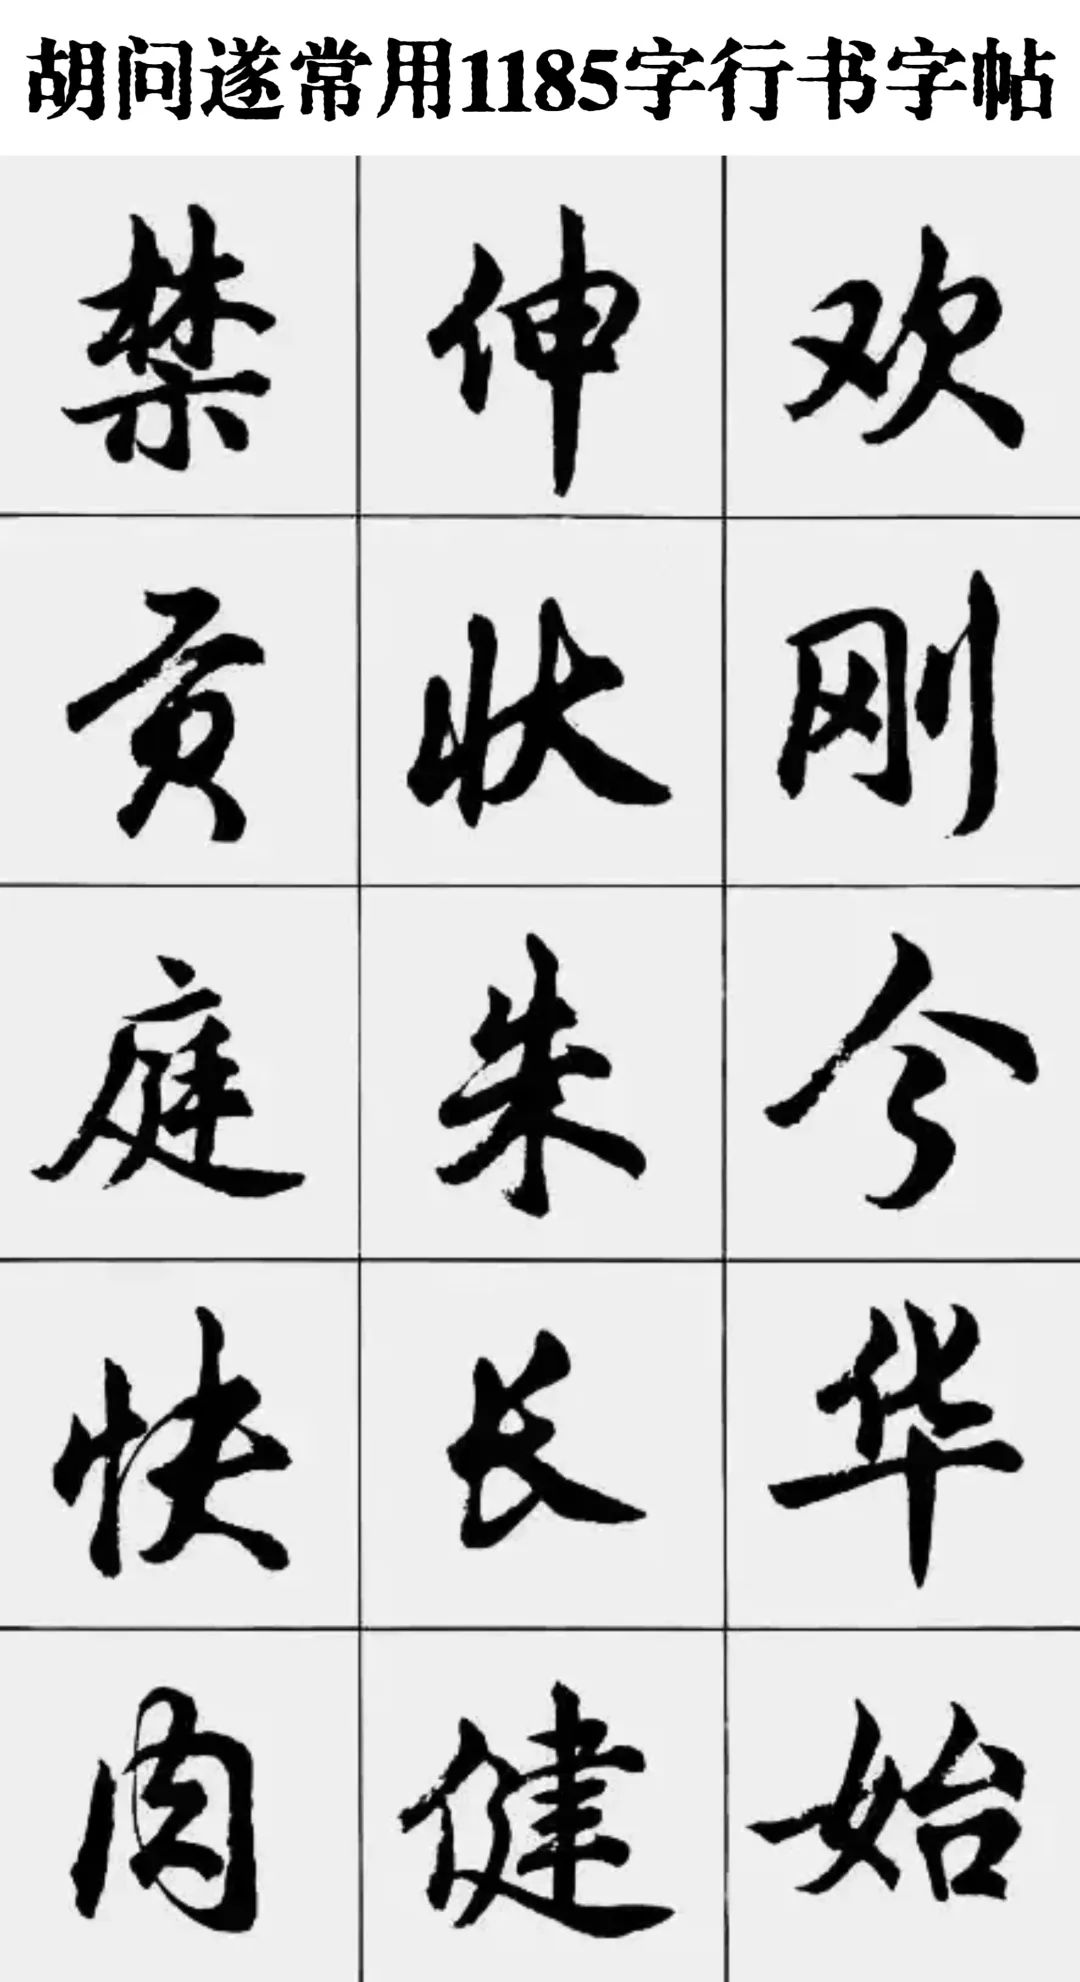 胡问遂常用1185字行书字帖
禁 伸 欢
贡 状 刚
庭 朱 今
快 长 华
肉 健 始